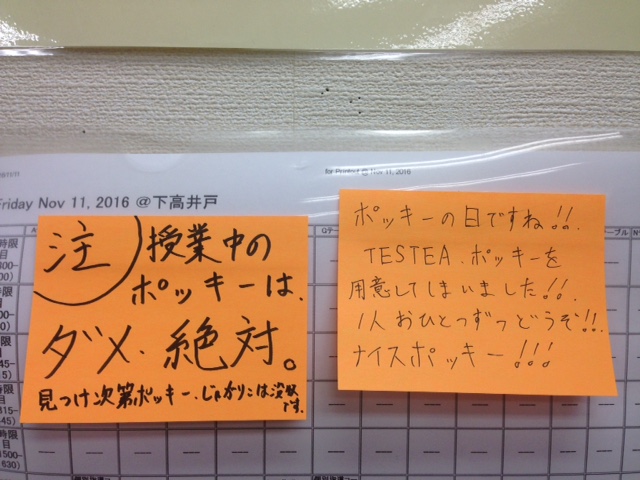 for Printect @ Nov 11, 2016
Friday Nov 11, 2016 @下高井戸
注 授業中の
ポッキーは、
ダメ、絶対。
見つけ次第ポッキー、じゃがりこは没収
です。
ポッキーの日ですね!!.
TESTEA.ポッキーを
用意してしまいました!!.
1人おひとつずつどうぞ!!.
ナイスポッキー!!!